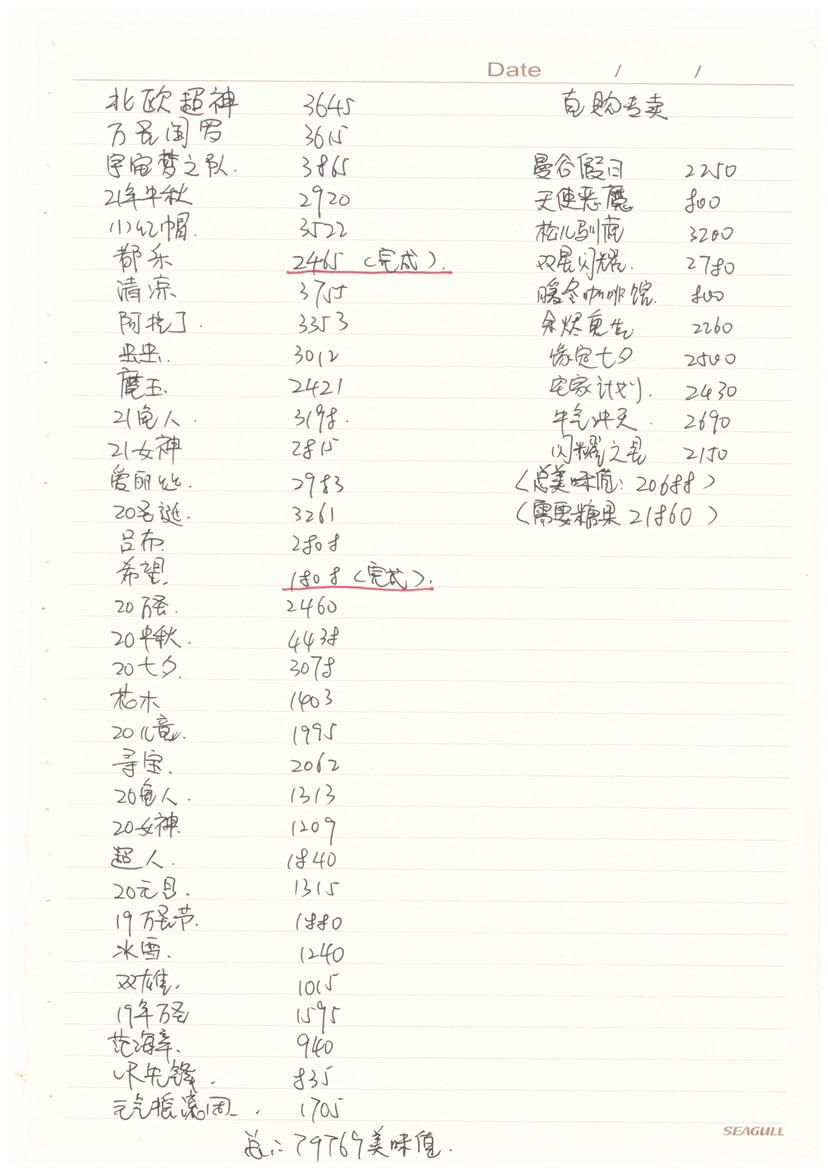 Date / /
北欧超神 3645
万圣阎罗 3615
宇宙梦之队. 3865
21年中秋 2920
小红帽. 3522
都乐 2465 (完成).
清凉 3755
阿拉丁. 3353
虫虫. 3012
魔王. 2421
21鱼人. 3198.
21女神 2815
爱丽丝 2983
20圣诞. 3261
吕布. 2808
希望. 1808 (完成).
20万圣. 2460
20中秋. 4438
20七夕. 3078
花木 1403
20儿童. 1995
寻宝. 2062
20鱼人. 1313
20女神. 1209
超人. 1840
20元旦. 1315
19万圣节. 1880
冰雪. 1240
双雄. 1015
19年万圣 1595
范海辛. 940
先锋. 835
元气摇滚团. 1705
总:79769美味值.
直购专卖
曼谷假日 2250
天使恶魔 800
松儿驯鹿 3200
双星闪耀. 2780
暖冬咖啡馆. 800
余烬重生 2260
缘定七夕 2500
宅家计划. 2430
牛气冲天 2690
闪耀之星 2150
(总美味值:20688)
(需要糖果21860)
SEAGULL